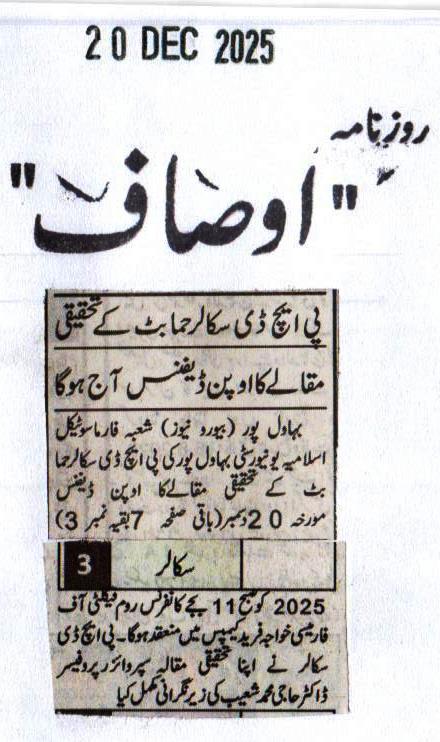 20 DEC 2025
روزنامہ
"اوصاف"
پی ایچ ڈی سکالر حما بٹ کے تحقیقی
مقالے کا اوپن ڈیفنس آج ہو گا
بہاول پور (بیورو نیوز) شعبہ فارماسوٹیکل
اسلامیہ یونیورسٹی بہاول پور کی پی ایچ ڈی سکالر حما
بٹ کے تحقیقی مقالے کا اوپن ڈیفنس
مورخہ 20 دسمبر (باقی صفحہ 7 بقیہ نمبر 3)
3 سکالر
2025 کو صبح 11 بجے کانفرنس روم فیکلٹی آف
فارمیسی خواجہ فرید کیمپس میں منعقد ہو گا۔ پی ایچ ڈی
سکالر نے اپنا تحقیقی مقالہ سپروائزر پروفیسر
ڈاکٹر حاجی محمد شعیب کی زیر نگرانی مکمل کیا